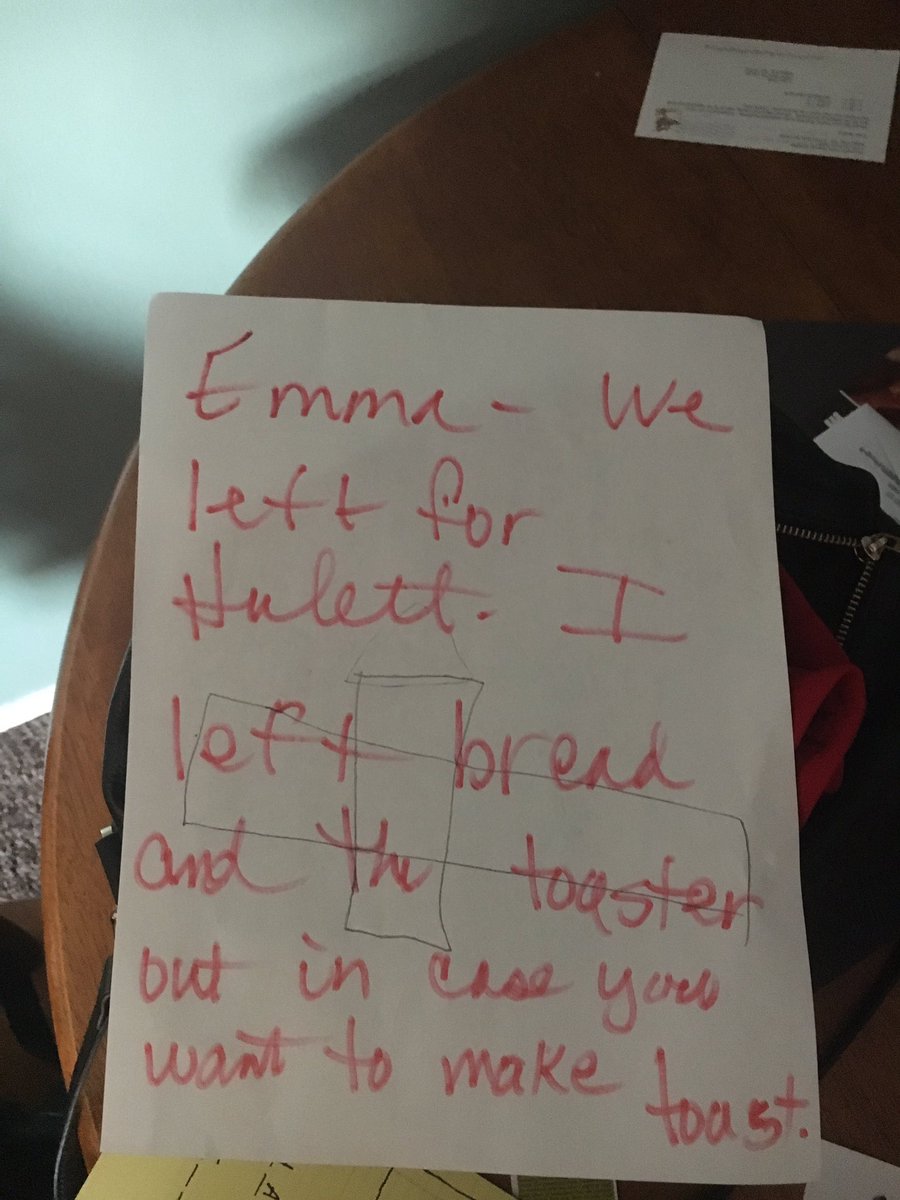 Emma - We
left for
Hulett. I
left bread
and the toaster
but in case you
want to make toast.